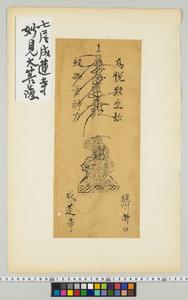 七尾成蓮寺
妙見大菩薩
為悦衆生故
現無量神力
能州所口
成蓮寺